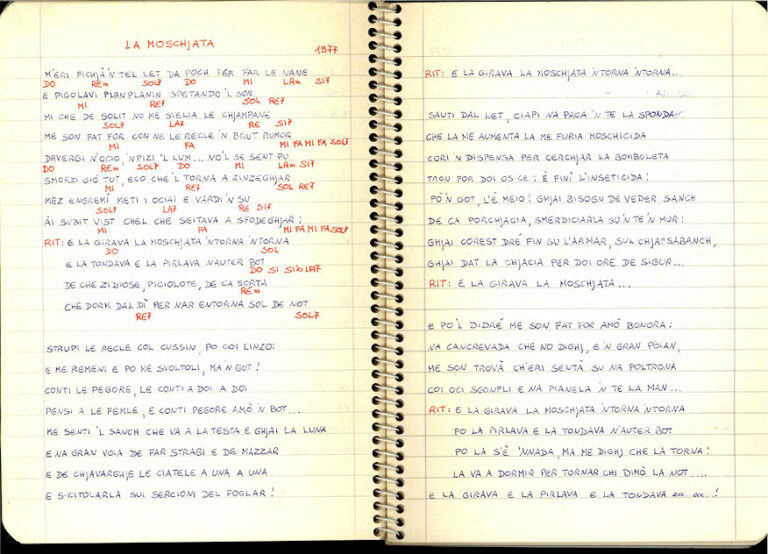 LA MOSCHJATA
1977
M'ERI FICHJÀ 'N TEL LET DA POCH PER FAR LE NANE
DO REm SOL7 DO MI LAm SI7
E PIGOLAVI PLANPLANIN SPETANDO 'L SON
MI RE7 SOL RE7
MI CHE DE SOLIT NO ME SIGLIA LE CHJAMPANE
SOL7 LA7 RE SI7
ME SON FAT FOR CON NE LE REGLE 'N BRUT RUMOR
MI FA MI FA MI FA SOL7
DAVERGI 'N OCIO, 'NPIZI 'L LUM... NO'L SE SENT PU
DO REm SOL7 DO MI LAm SI7
SMORZI GIÓ TUT, ECO CHE 'L TORNA A ZINZEGHJAR
MI RE7 SOL RE7
MEZ ENGREMÌ METI I OCIAI E VARDI 'N SU
SOL7 LA7 RE SI7
ÀI SUBIT VIST CHEL CHE SEITAVA A SFODEGHJAR:
MI FA MI FA MI FA SOL7
RIT: E LA GIRAVA LA MOSCHJATA 'NTORNA 'NTORNA
DO SOL
E LA TONDAVA E LA PIRLAVA N'AUTER BOT
DO SI SIb LA7
DE CHE ZIDIOSE, PICIOLOTE, DE CA SORTA
REm
CHE DORM DAL DÌ PER NAR ENTORNA SOL DE NOT
RE7 SOL7
STRUPI LE REGLE COL CUSSIN, PO COI LINZOI
E ME REMENI E PO ME SVOLTOLI, MA 'N GOT!
CONTI LE PEGORE, LE CONTI A DOI A DOI
PENSI A LE FEMLE, E CONTI PEGORE AMÒ 'N BOT...
ME SENTI 'L SANCH CHE VA A LA TESTA E GHJAI LA LUNA
E NA GRAN VOIA DE FAR STRAGI E DE MAZZAR
E DE CHJAVARGHJE LE CIATELE A UNA A UNA
E S-CITOLARLA SUI SERCIONI DEL FOGLAR!
RIT: E LA GIRAVA LA MOSCHJATA 'NTORNA 'NTORNA...
SAUTI DAL LET, CIAPI NA PACA 'N TE LA SPONDA
CHE LA ME AUMENTA LA ME FURIA MOSCHICIDA
CORI 'N DISPENSA PER CERCHJAR LA BOMBOLETA
TRON FOR DOI OS-CE: È FINÌ L'INSETICIDA!
PO 'N GOT, L'È MEIO! GHJAI BISOGN DE VEDER SANCH
DE CA PORCHJACIA, SMERDICIARLA SU 'N TE 'N MUR!
GHJAI COREST DRE FIN SU L'ARMAR, SUL CHJASSABANCH,
GHJAI DAT LA CHJACIA PER DOI ORE DE SIGUR...
RIT: E LA GIRAVA LA MOSCHJATA...
E PO 'L DIDRÉ ME SON FAT FOR AMÓ BONORA:
NA CANCREVADA CHE NO DIGHJ, E 'N GRAN POIAN,
ME SON TROVÀ CH'ERI SENTÀ SU NA POLTRONA
COI OCI SGONFLI E NA PIANELA 'N TE LA MAN...
RIT: E LA GIRAVA LA MOSCHJATA 'NTORNA 'NTORNA
PO LA PIRLAVA E LA TONDAVA N'AUTER BOT
PO LA S'È 'NNADA, MA ME DIGHJ CHE LA TORNA:
LA VA A DORMIR PER TORNAR CHI DIMÓ LA NOT....
E LA GIRAVA E LA PIRLAVA E LA TONDAVA ecc. ecc. ...!